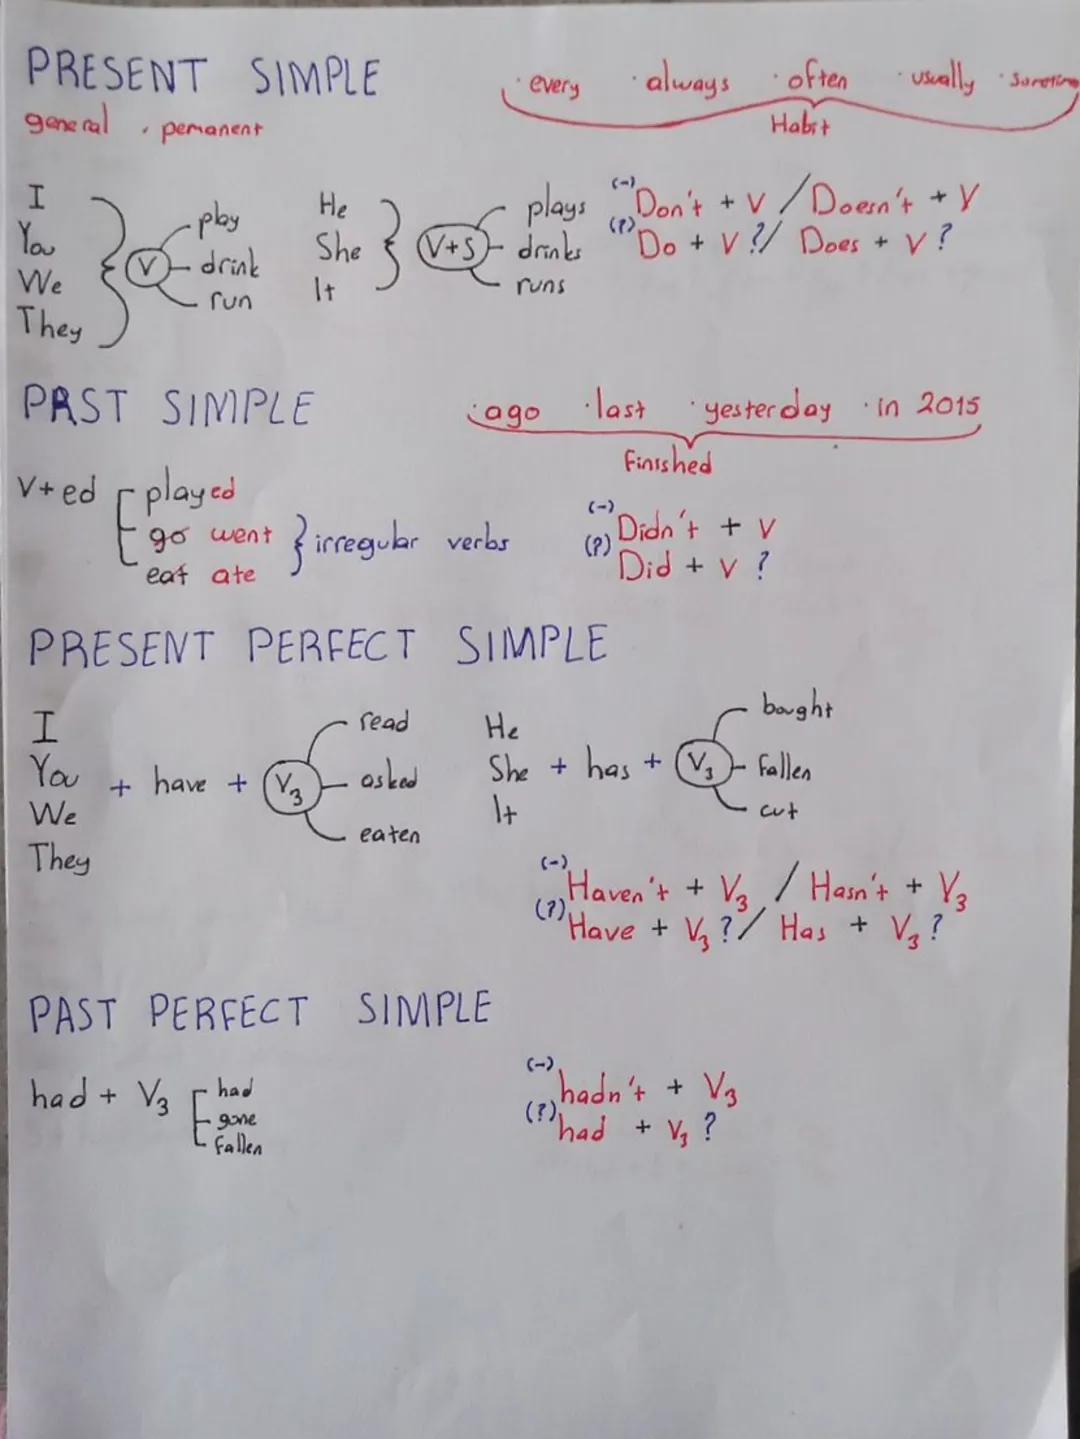 PRESENT SIMPLE
· every · always · often · usually
general · pemanent
Habit
I
You
We
They
V
play
drink
run
He
She
It
V+S
plays
drinks
runs
(-) Don't + V / Doesn't + V
(?) Do + V ?/ Does + V ?
PAST SIMPLE
· ago · last · yesterday · in 2015
Finished
V+ed
played
go went
eat ate
irregular verbs
(-) Didn't + V
(?) Did + V ?
PRESENT PERFECT SIMPLE
I
You
We
They
+ have + V3
read
asked
eaten
He
She
It
+ has + V3
bought
fallen
cut
(-) Haven't + V3 / Hasn't + V3
(?) Have + V3 ?/ Has + V3 ?
PAST PERFECT SIMPLE
had + V3
had
gone
fallen
(-) hadn't + V3
(?) had + V3 ?